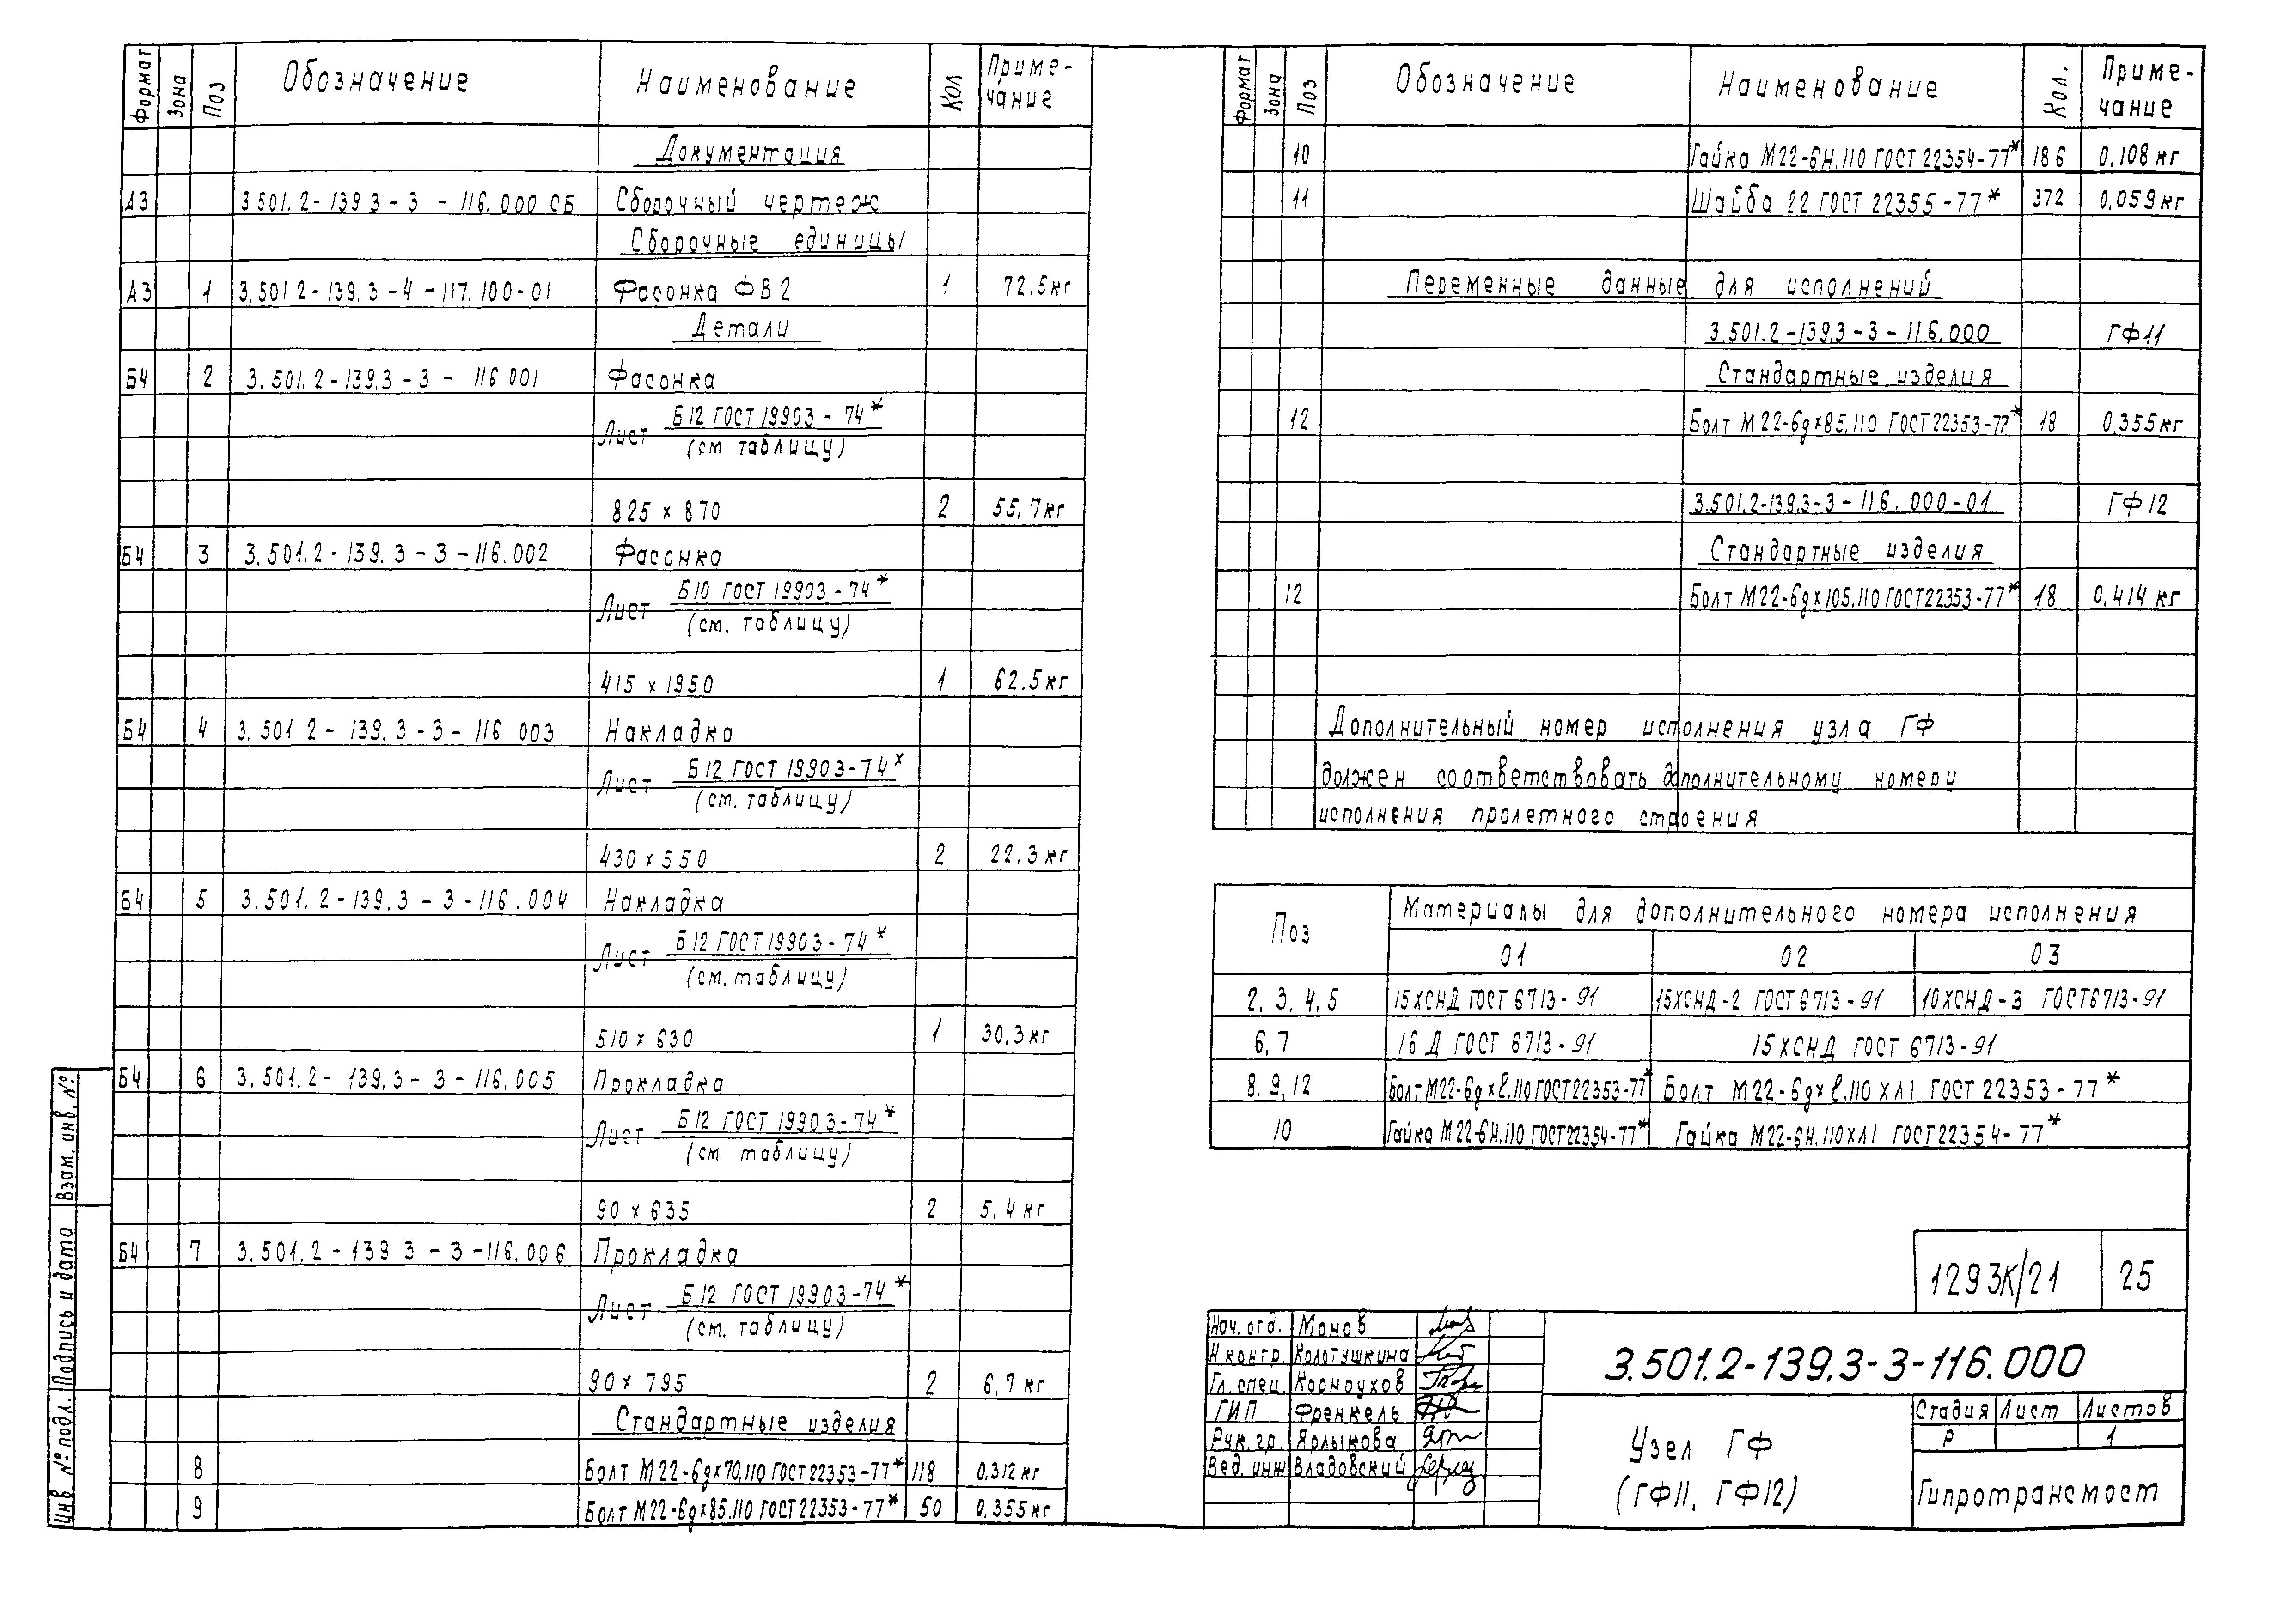 Формат Зона Поз Обозначение Наименование Кол Приме-чание
Документация
А3 3.501.2-139.3-3-116.000 СБ Сборочный чертеж
Сборочные единицы
А3 1 3.501.2-139.3-4-117.100-01 Фасонка ФВ2 1 72.5кг
Детали
Б4 2 3.501.2-139.3-3-116 001 Фасонка
Лист Б12 ГОСТ 19903-74*
(см таблицу)
825×870 2 55,7кг
Б4 3 3.501.2-139.3-3-116.002 Фасонка
Лист Б10 ГОСТ 19903-74*
(см. таблицу)
415×1950 1 62.5кг
Б4 4 3.501 2-139.3-3-116 003 Накладка
Лист Б12 ГОСТ 19903-74*
(см. таблицу)
430×550 2 22.3кг
Б4 5 3.501.2-139.3-3-116.004 Накладка
Лист Б12 ГОСТ 19903-74*
(см. таблицу)
510×630 1 30,3кг
Б4 6 3.501.2-139.3-3-116.005 Прокладка
Лист Б12 ГОСТ 19903-74*
(см таблицу)
90×635 2 5,4кг
Б4 7 3.501.2-139 3-3-116.006 Прокладка
Лист Б12 ГОСТ 19903-74*
(см. таблицу)
90×795 2 6,7кг
Стандартные изделия
8 Болт М22-6g×70.110 ГОСТ 22353-77* 118 0,312кг
9 Болт М22-6g×85.110 ГОСТ 22353-77* 50 0,355кг
Взам. инв. №
Подпись и дата
Инв № подл.
Формат Зона Поз Обозначение Наименование Кол. Приме-чание
10 Гайка М22-6Н.110 ГОСТ 22354-77* 186 0,108кг
11 Шайба 22 ГОСТ 22355-77* 372 0,059кг
Переменные данные для исполнений
3.501.2-139.3-3-116.000 ГФ11
Стандартные изделия
12 Болт М22-6g×85.110 ГОСТ 22353-77* 18 0,355кг
3.501.2-139.3-3-116.000-01 ГФ12
Стандартные изделия
12 Болт М22-6g×105.110 ГОСТ 22353-77* 18 0,414кг
Дополнительный номер исполнения узла ГФ
должен соответствовать дополнительному номеру
исполнения пролетного строения
Поз Материалы для дополнительного номера исполнения
01 02 03
2, 3, 4, 5 15ХСНД ГОСТ 6713-91 15ХСНД-2 ГОСТ 6713-91 10ХСНД-3 ГОСТ 6713-91
6, 7 16Д ГОСТ 6713-91 15ХСНД ГОСТ 6713-91
8, 9, 12 Болт М22-6g×ℓ.110 ГОСТ 22353-77* Болт М22-6g×ℓ.110 ХЛ1 ГОСТ 22353-77*
10 Гайка М22-6Н.110 ГОСТ 22354-77* Гайка М22-6Н.110ХЛ1 ГОСТ 22354-77*
1293К/21 25
Нач. отд. Монов
Н контр. Колотушкина
Гл. спец. Корноухов
ГИП Френкель
Рук. гр. Ярлыкова
Вед. инж Владовский
3.501.2-139.3-3-116.000
Узел ГФ
(ГФ11, ГФ12)
Стадия Лист Листов
Р 1
Гипротрансмост